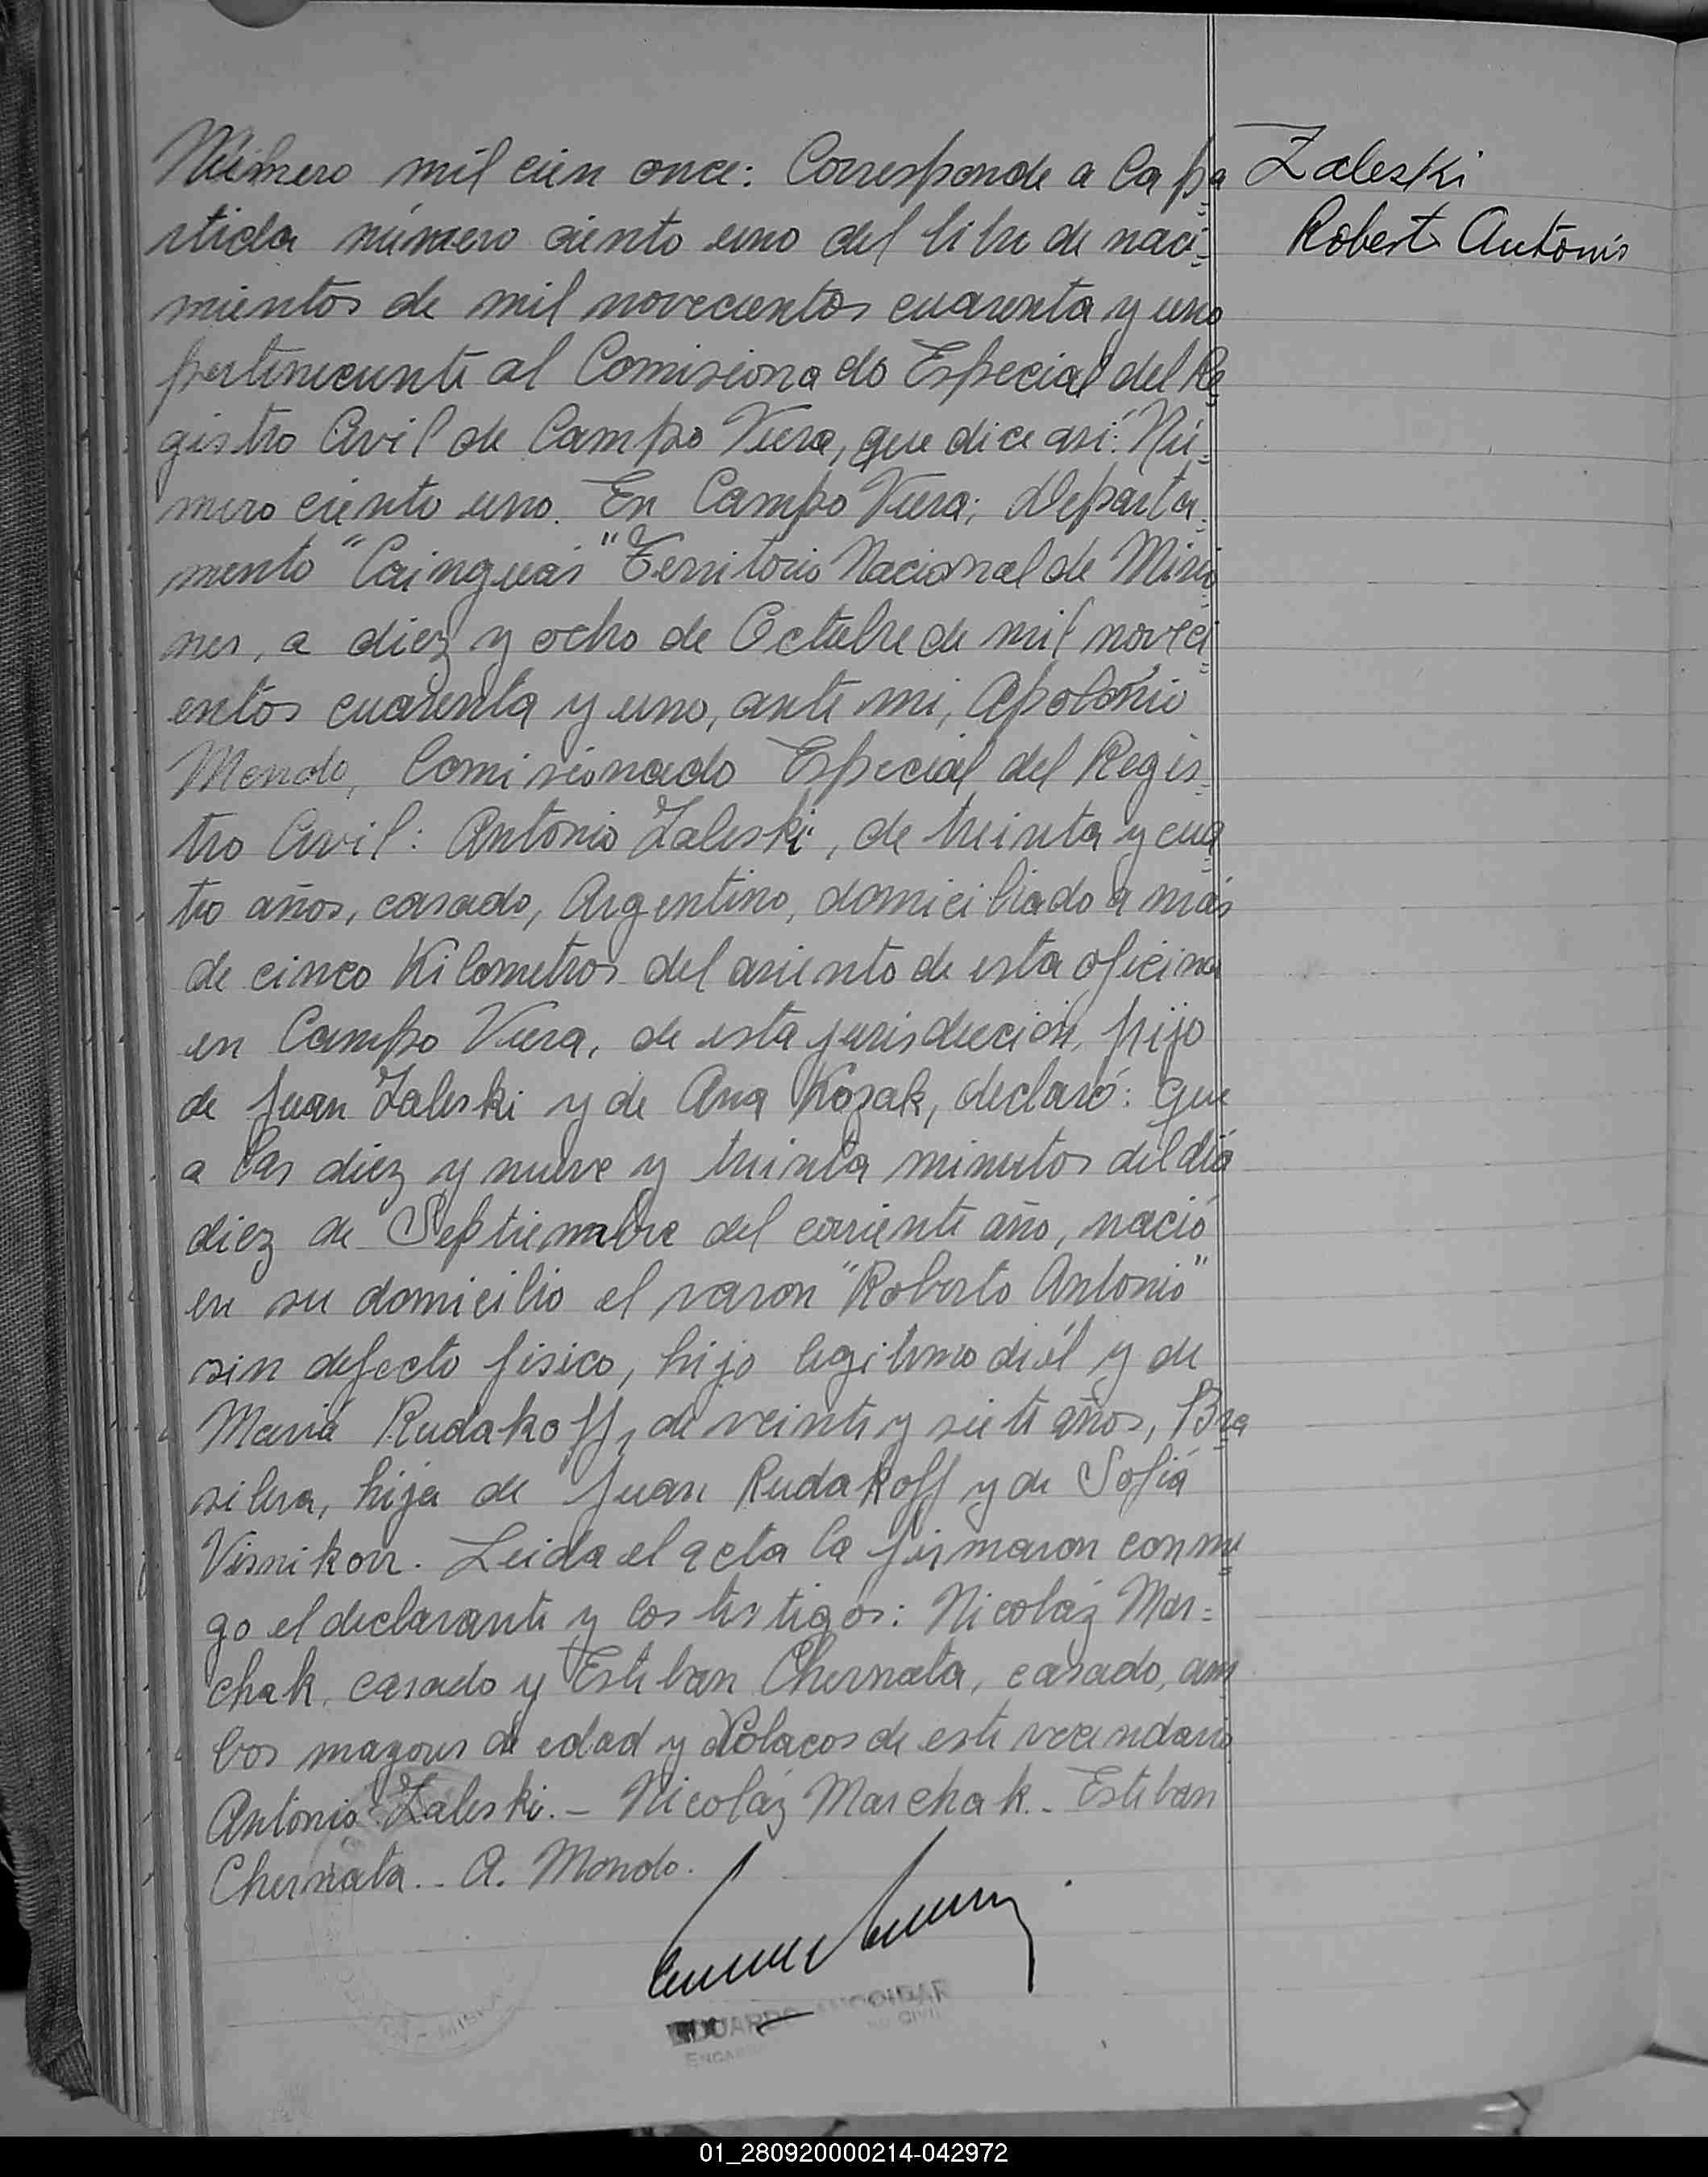 Número mil cien once: Corresponde a la pa=
rtida número ciento uno del libro de naci=
mientos de mil novecientos cuarenta y uno
perteneciente al Comisionado Especial del Re=
gistro Civil de Campo Viera, que dice así: Nú=
mero ciento uno. En Campo Viera; Departa=
mento "Cainguás" Territorio Nacional de Misio=
nes, a diez y ocho de Octubre de mil noveci=
entos cuarenta y uno, ante mi, Apolonio
Mendo, Comisionado Especial del Regis=
tro Civil: Antonio Zaleski, de treinta y cua=
tro años, casado, Argentino, domiciliado a más
de cinco Kilometros del asiento de esta oficina
en Campo Viera, de esta jurisdicción, hijo
de Juan Zaleski y de Ana Kozak, declaró: Que
a las diez y nueve y treinta minutos del día
diez de Septiembre del corriente año, nació
en su domicilio el varon "Roberto Antonio"
sin defecto fisico, hijo legitimo di él y de
María Rudakoff, de veinte y siete años, Bra=
silera, hija de Juan Rudakoff y de Sofía
Leida el acta la firmaron conmi=
go el declarante y los testigos: Nicoláz Mar=
chak, casado y Esteban Chernata, casado, am=
bos mayores de edad y Polacos de este vecindario
Antonio Zaleski.- Nicoláz Marchak.- Esteban
Chernata.- A. Mondo.
Zaleski
Roberto Antonio
01_280920000214-042972